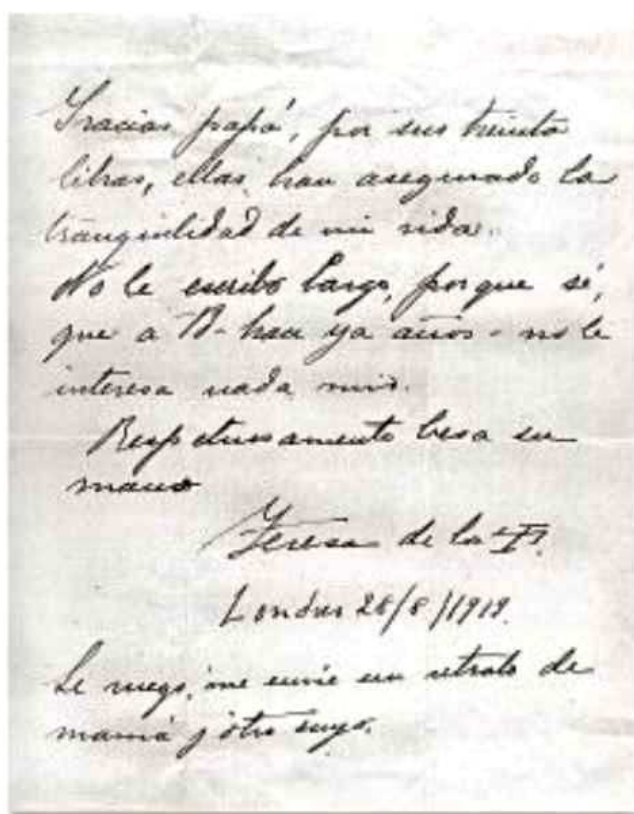 Gracias papá, por sus treinta
libras, ellas han asegurado la
tranquilidad de mi vida.
No le escribo largo, porque sé,
que a V- hace ya años - no le
interesa nada mio.
Respetuosamente besa su
mano
Teresa de la +.
Londres 28/8/1919.
Le ruego, me envie un retrato de
mamá y otro suyo.